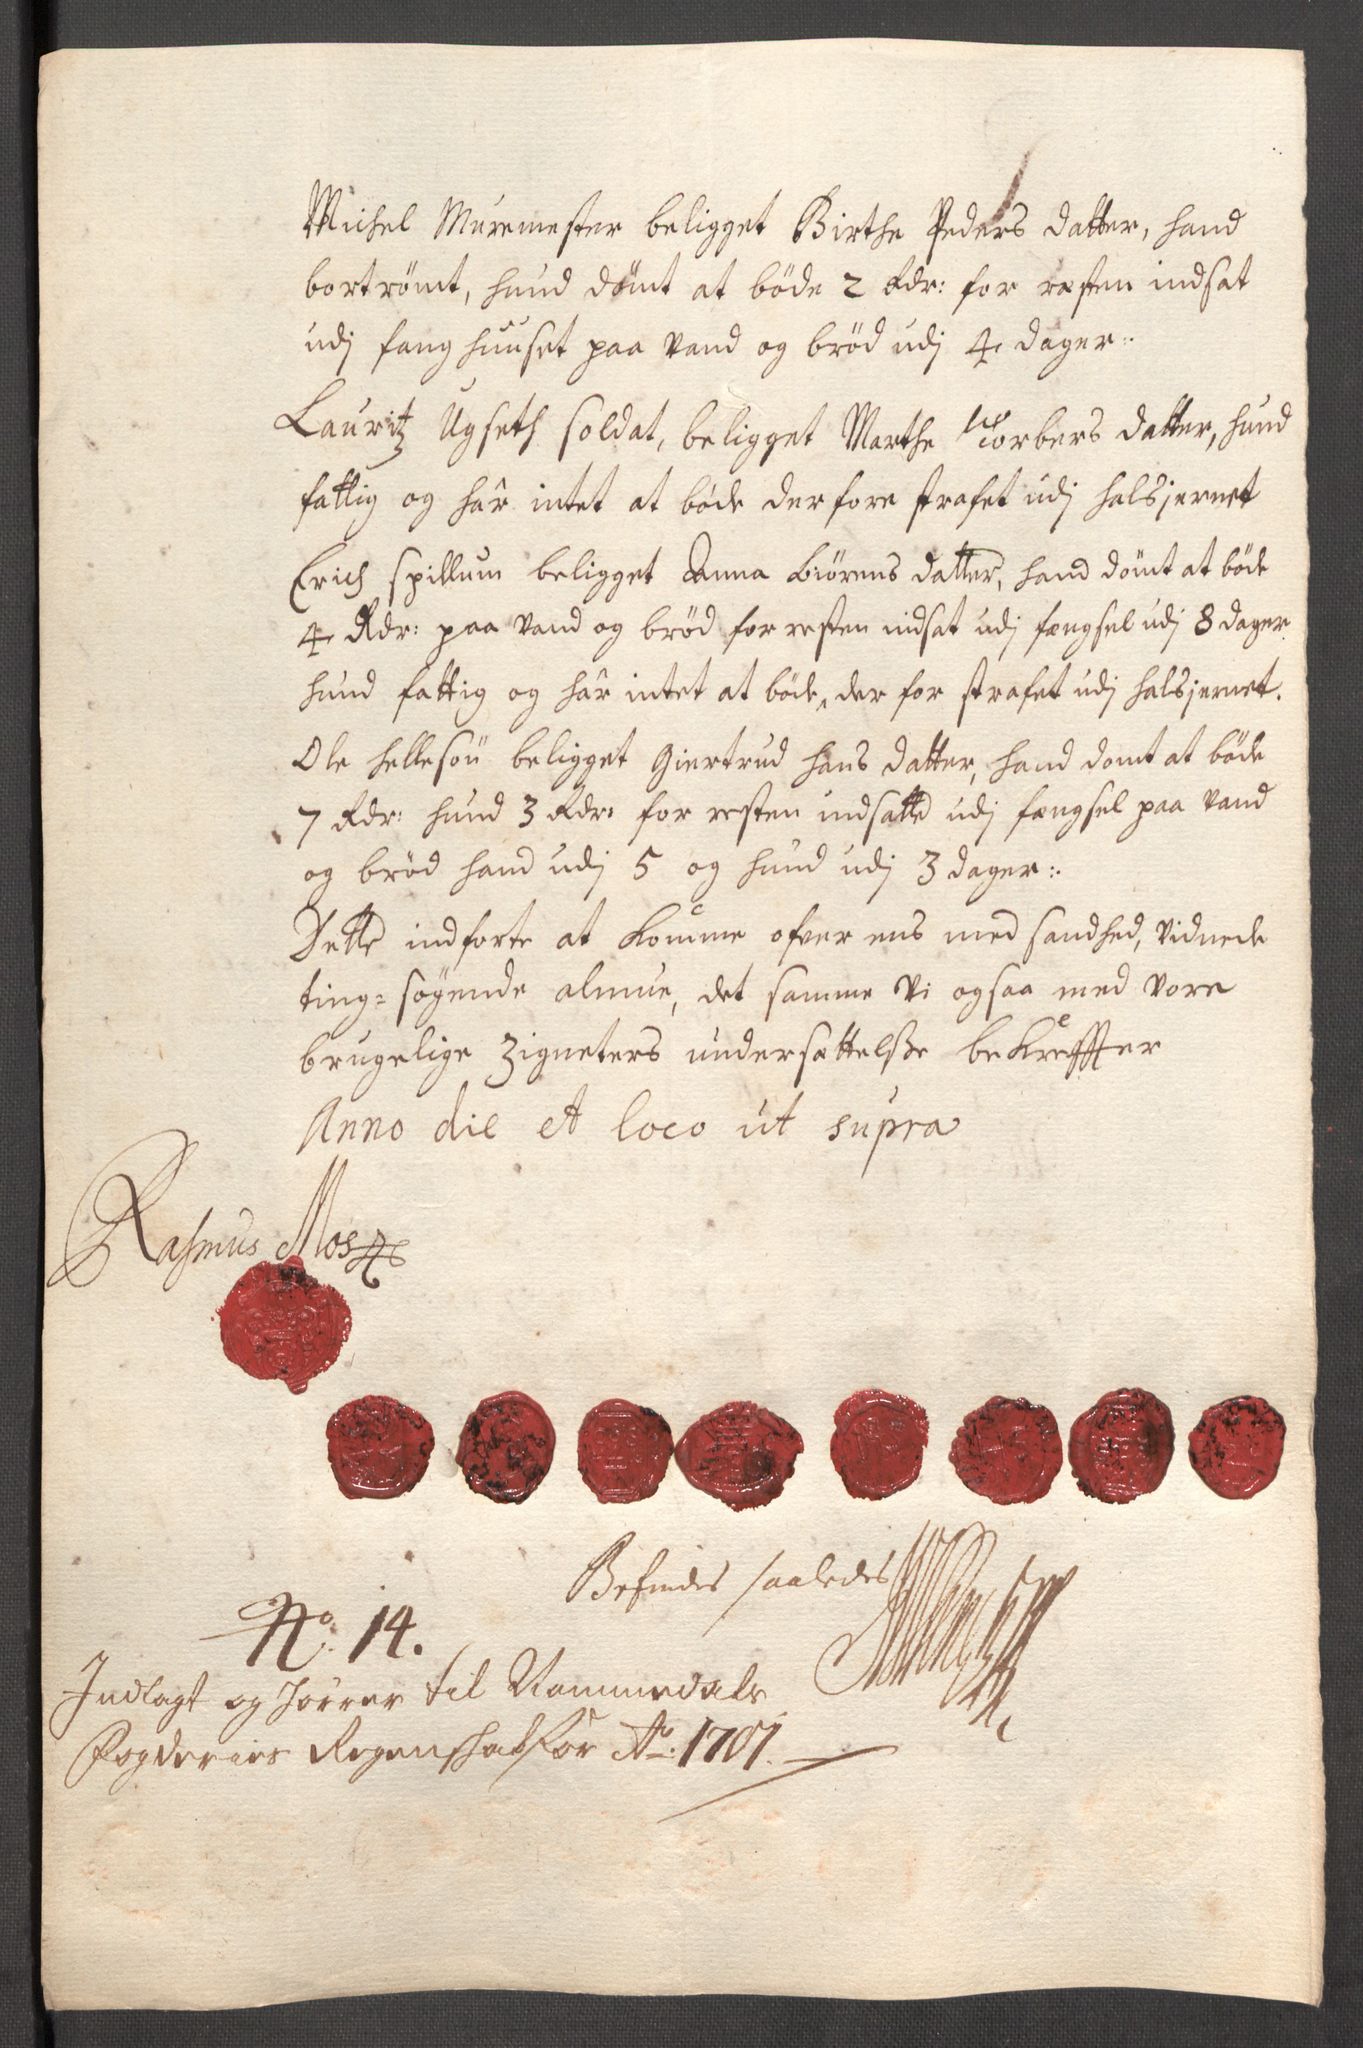 Michel Muremester beligget Birthe Peders datter, hand
bortrömt, hund dömt at böde 2 Rdr: for resten indsat
udj fang huuset paa vand og bröd udj 4 dager:
Lauritz Ugseth soldat, beligget Marthe Torbers datter, hund
fattig og har intet at böde derfore strafet udj halsjernet
Erich spillum beligget Anna Biörens datter, hand dömt at böde
4 Rdr: paa vand og bröd for resten indsat udj fengsel udj 8 dager
hund fattig og har intet at böde, der for strafet udj halsjernet.
Ole hellesön beligget Giertrud hans datter, hand domt at böde
7 Rdr: hund 3 Rdr: for resten indsatte udj fengsel paa vand
og bröd hand udj 5 og hund udj 3 dager:
Dette indforte at komme ofver ens med sandhed, vidnede
ting=sögende almue, det samme vi ogsaa med vore
brugelige zigneters undersættelsse bekreffter
Anno die et loco ut supra
Rasmus Mos
Befindes saaledes
No. 14.
Indlagt og hörer til Nammedals
Fogderies Regenskab for Ao: 1701.